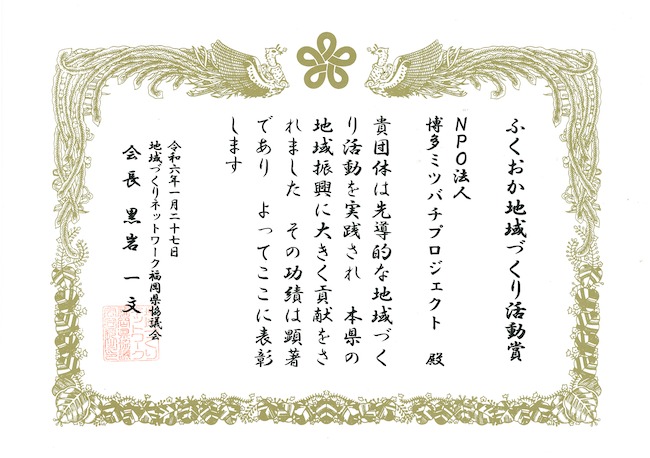 ふくおか地域づくり活動賞
NPO法人
博多ミツバチプロジェクト 殿
貴団体は先導的な地域づく
り活動を実践され 本県の
地域振興に大きく貢献をさ
れました その功績は顕著
であり よってここに表彰
します
令和六年一月二十七日
地域づくりネットワーク福岡県協議会
会長 黒岩 一文